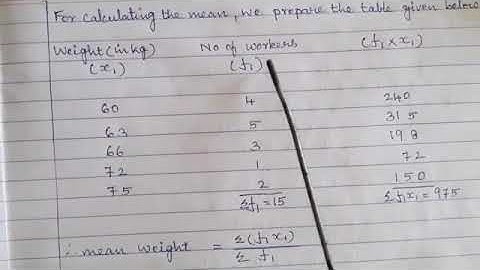 For calculating the mean, we prepare the table given below
Weight (in kg) No of workers (f₁ × x₁)
(x₁) (f₁)
60 4 240
63 5 315
66 3 198
72 1 72
75 2 150
Σf₁ = 15 Σf₁x₁ = 975
∴ mean weight = Σ(f₁x₁) / Σ f₁